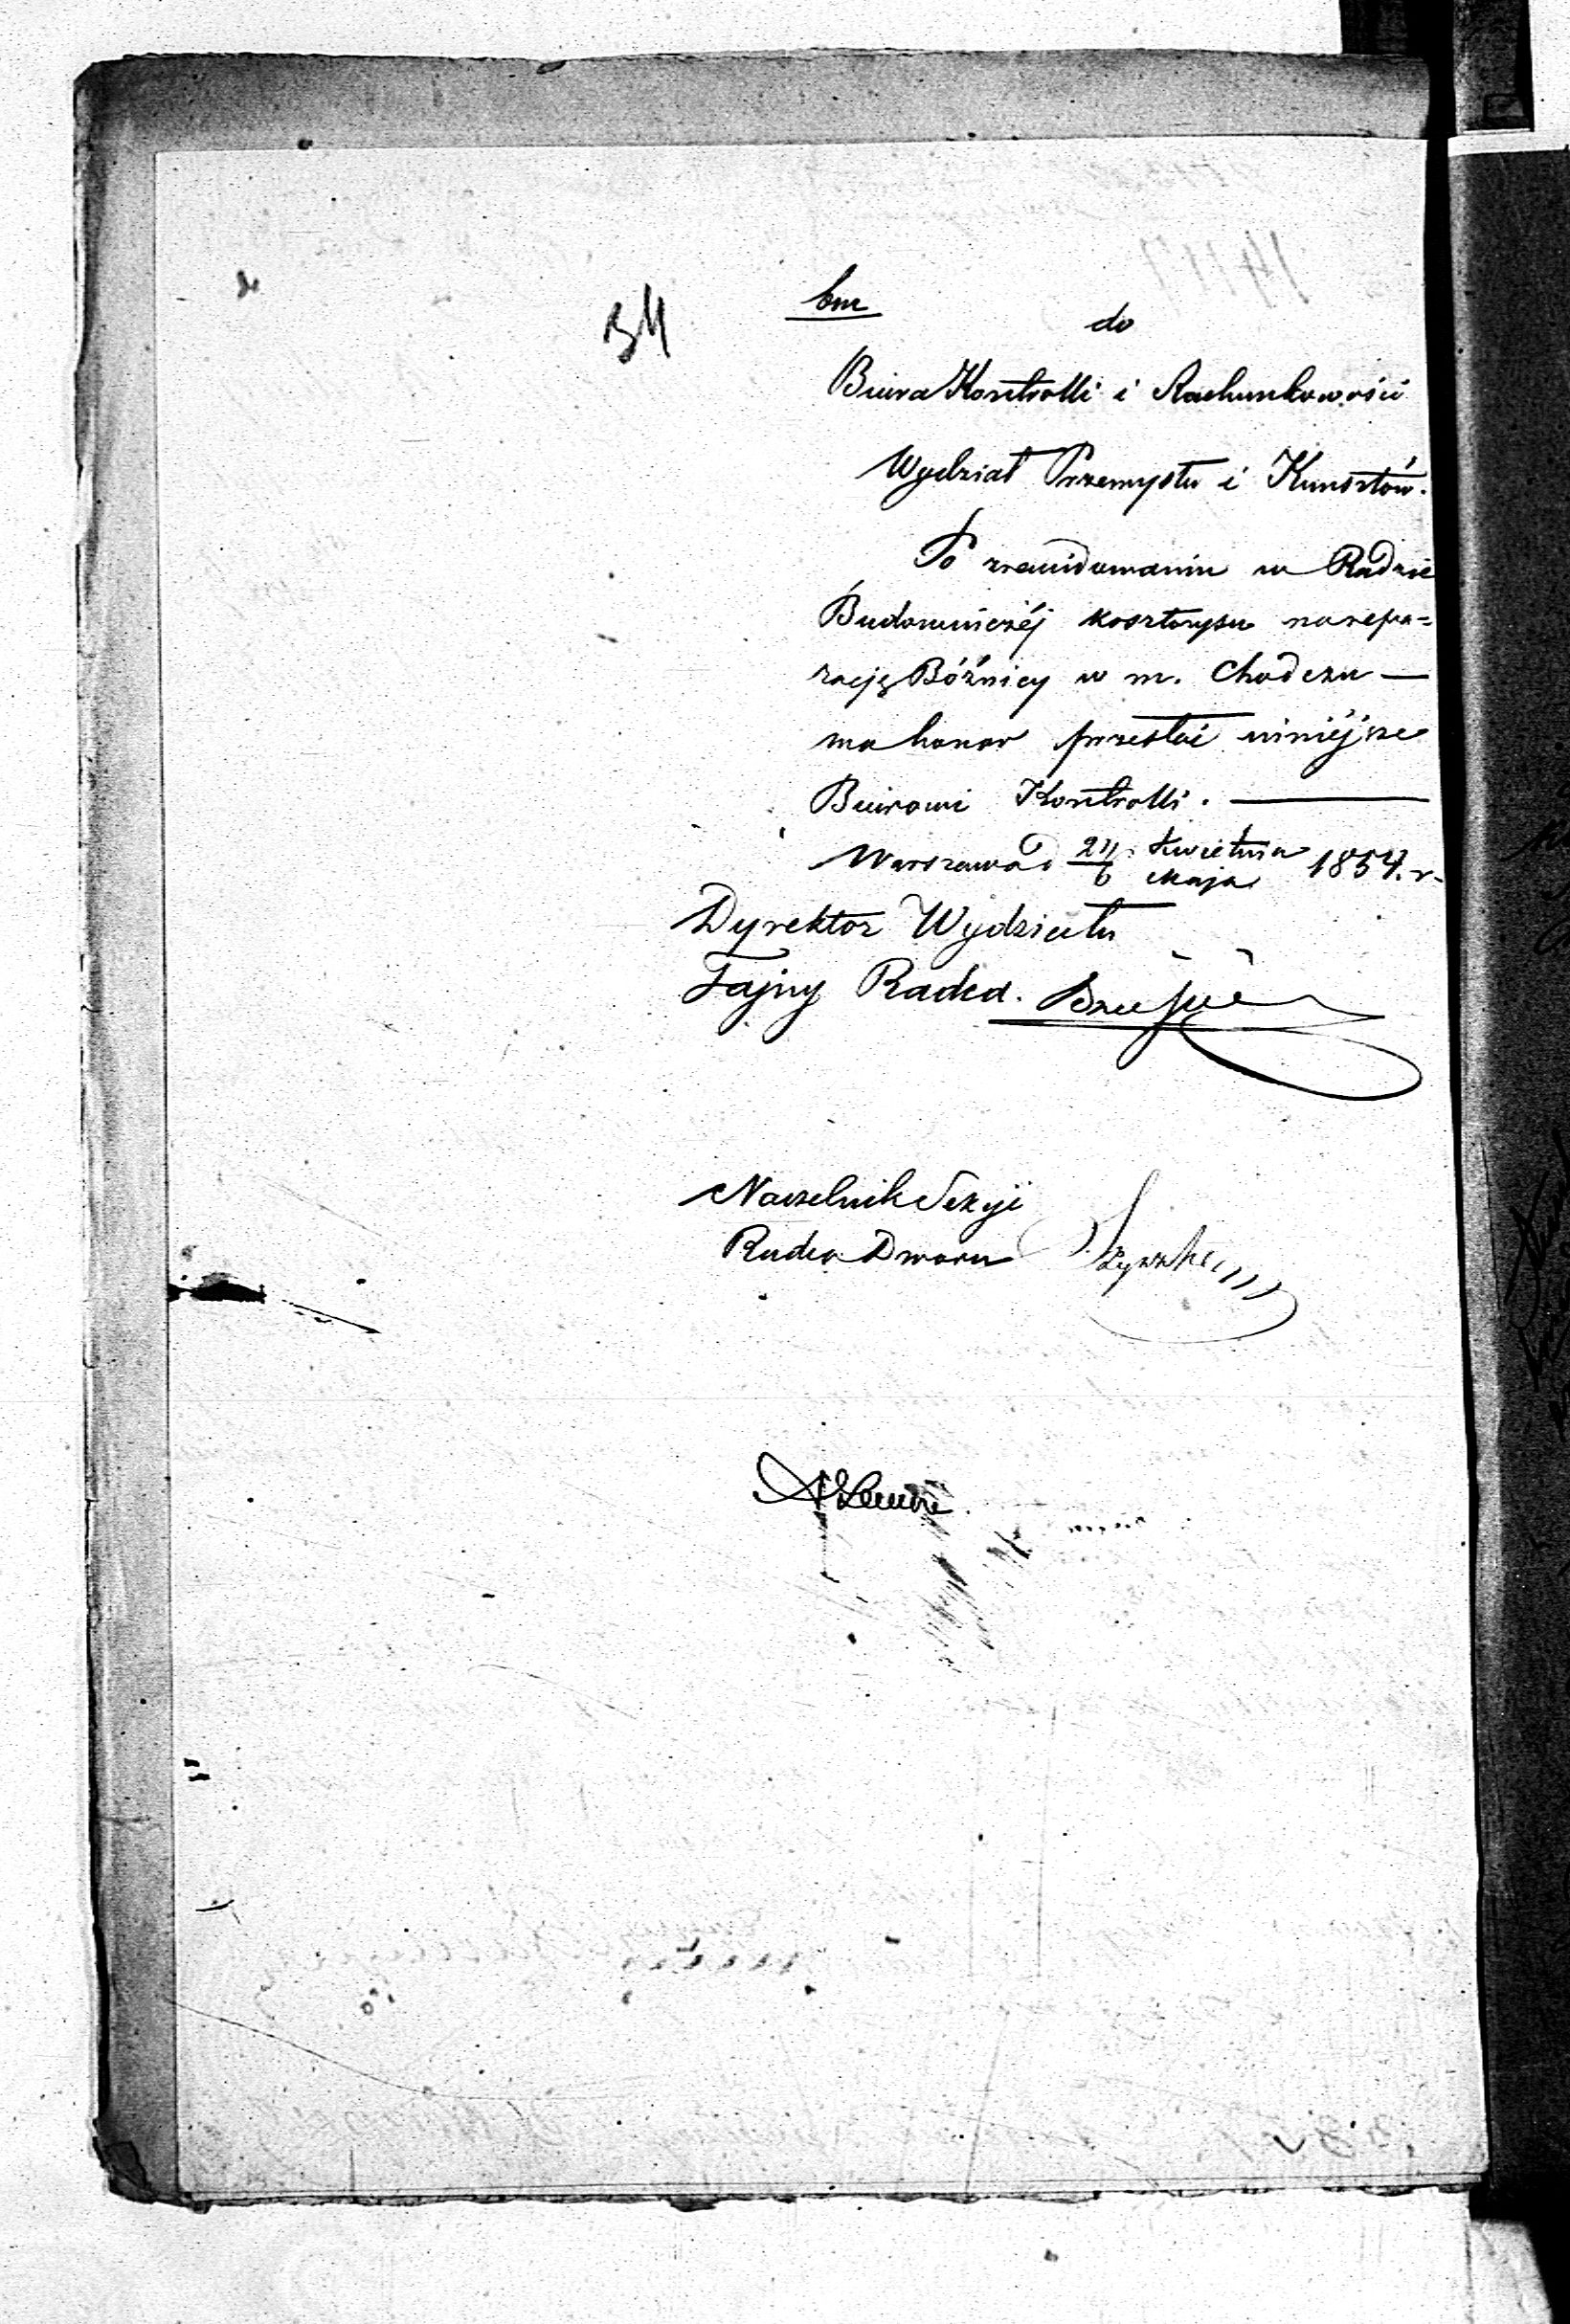 34
bm
do
Biura Kontrolli i Rachunkowości
Wydział Przemysłu i Kunsztów.
Po zrewidowaniu w Radzie
Budowniczéj kosztorysu na repa=
racyę Bóźnicy w m. Chodczu —
ma honor przesłać niniéjsze
Biurowi Kontrolli. —
Warszawa d 24/6 Kwietnia/Maja 1854. r.
Dyrektor Wydziału
Tajny Radca.
Naczelnik Sekcyi
Radca Dworu